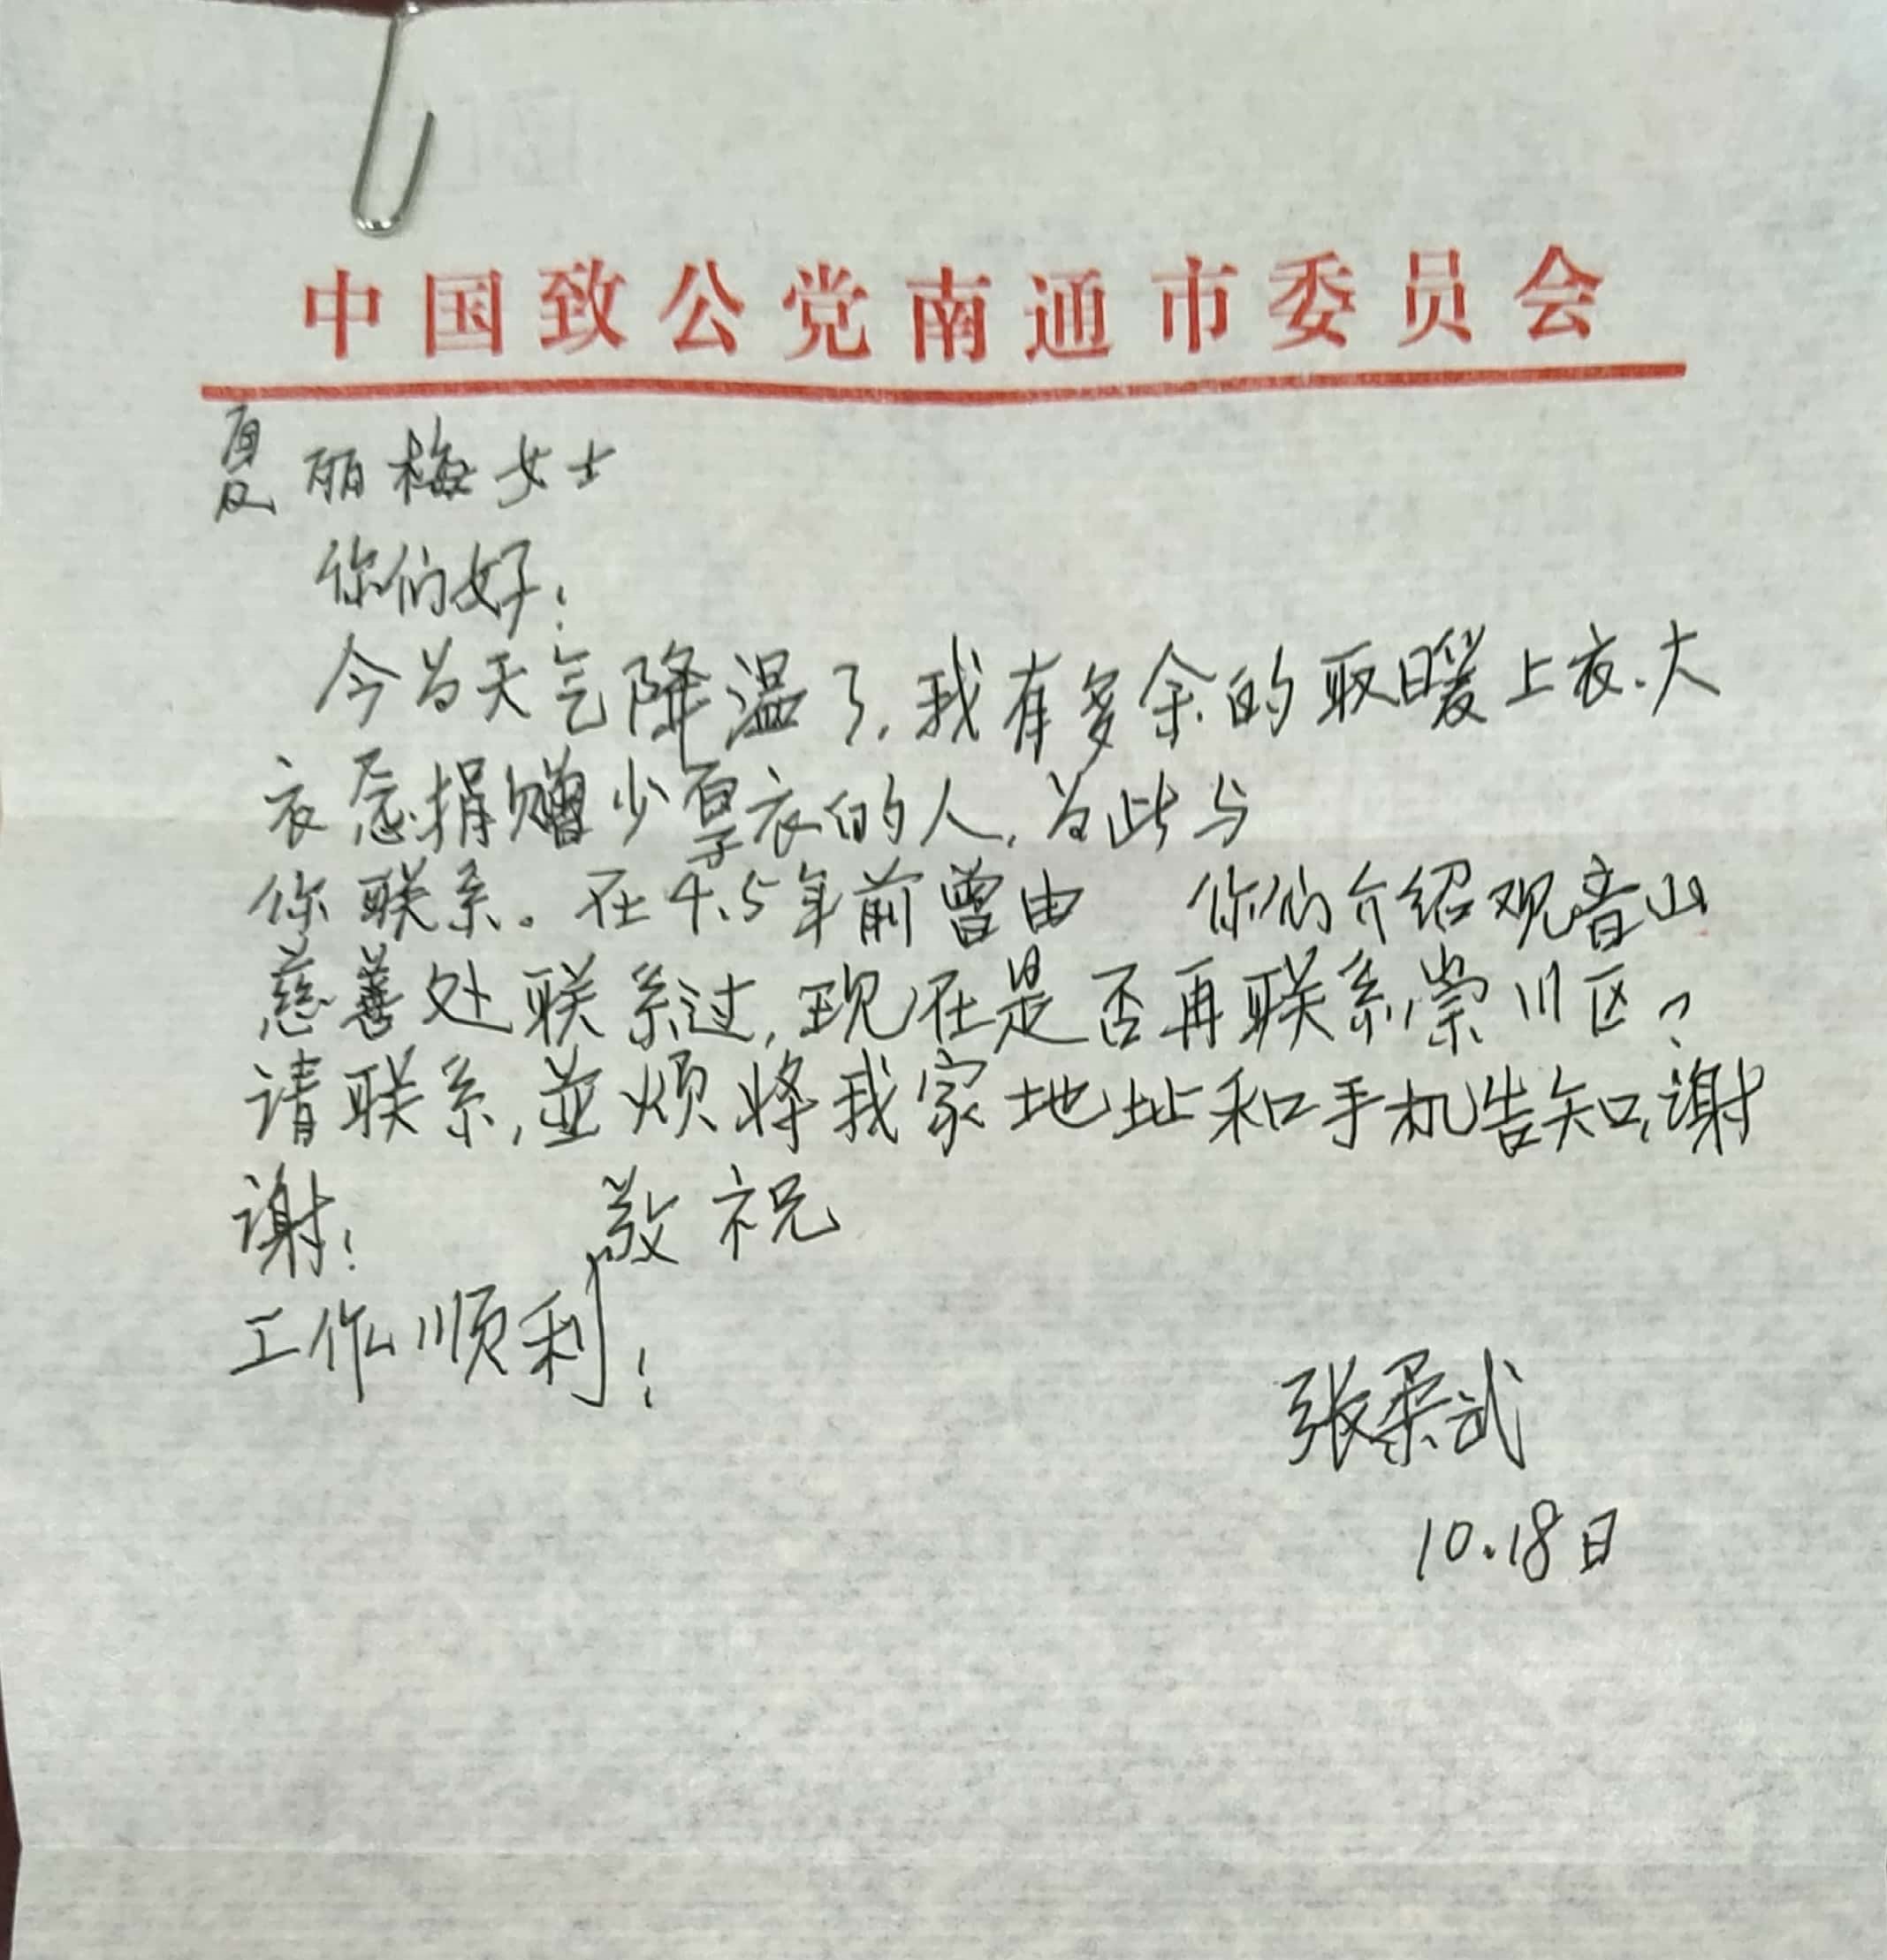 中国致公党南通市委员会
夏丽梅女士
你们好!
今为天气降温了,我有多余的取暖上衣、大
衣忍捐赠少夏衣的人,为此与
你联系。在4.5年前曾由 你们介绍观音山
慈善处联系过,现在是否再联系崇川区?
请联系,並烦将我家地址和手机告知,谢
谢! 敬祝
工作顺利!
张柔武
10.18日